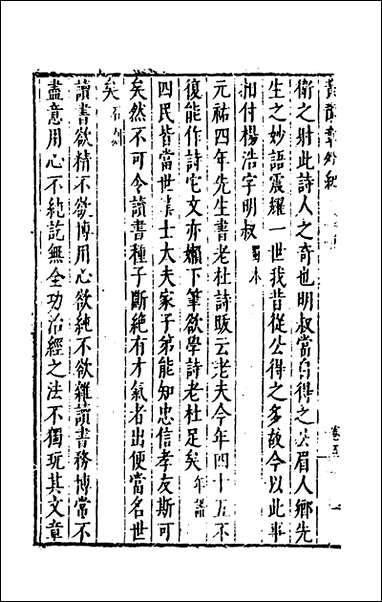 衛之射此詩人之奇也明叔當自得之公眉人鄉先
生之妙語震耀一世我昔從公得之多故今以此事
相付楊浩字明叔蜀本
元祐四年先生書老杜詩跋云老夫今年四十五不
復能作詩它文亦嬾下筆欲學詩老杜足矣年譜
四民皆當世業士大夫家子弟能知忠信孝友斯可
矣然不可令讀書種子斷絕有才氣者出便當名世
矣
讀書欲精不欲博用心欲純不欲雜讀書務博常不
盡意用心不純訖無全功治經之法不獨玩其文章